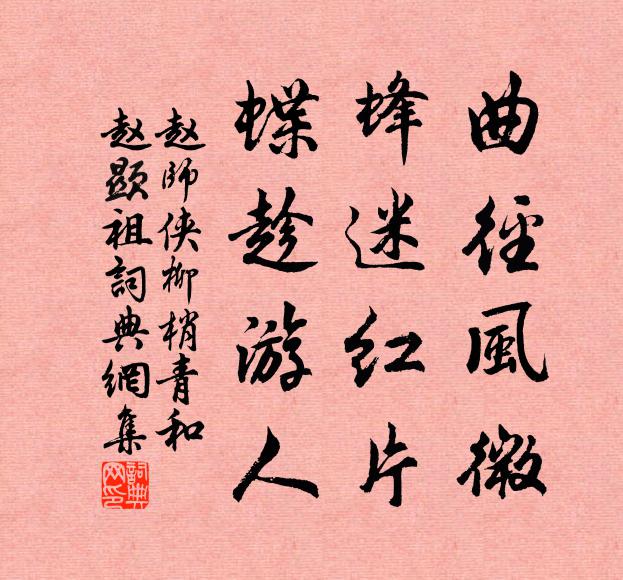 曲徑風微
蜂迷紅片
蝶趁游人
赵師俠柳梢青和
赵顯祖詞典網集
詞典
网印